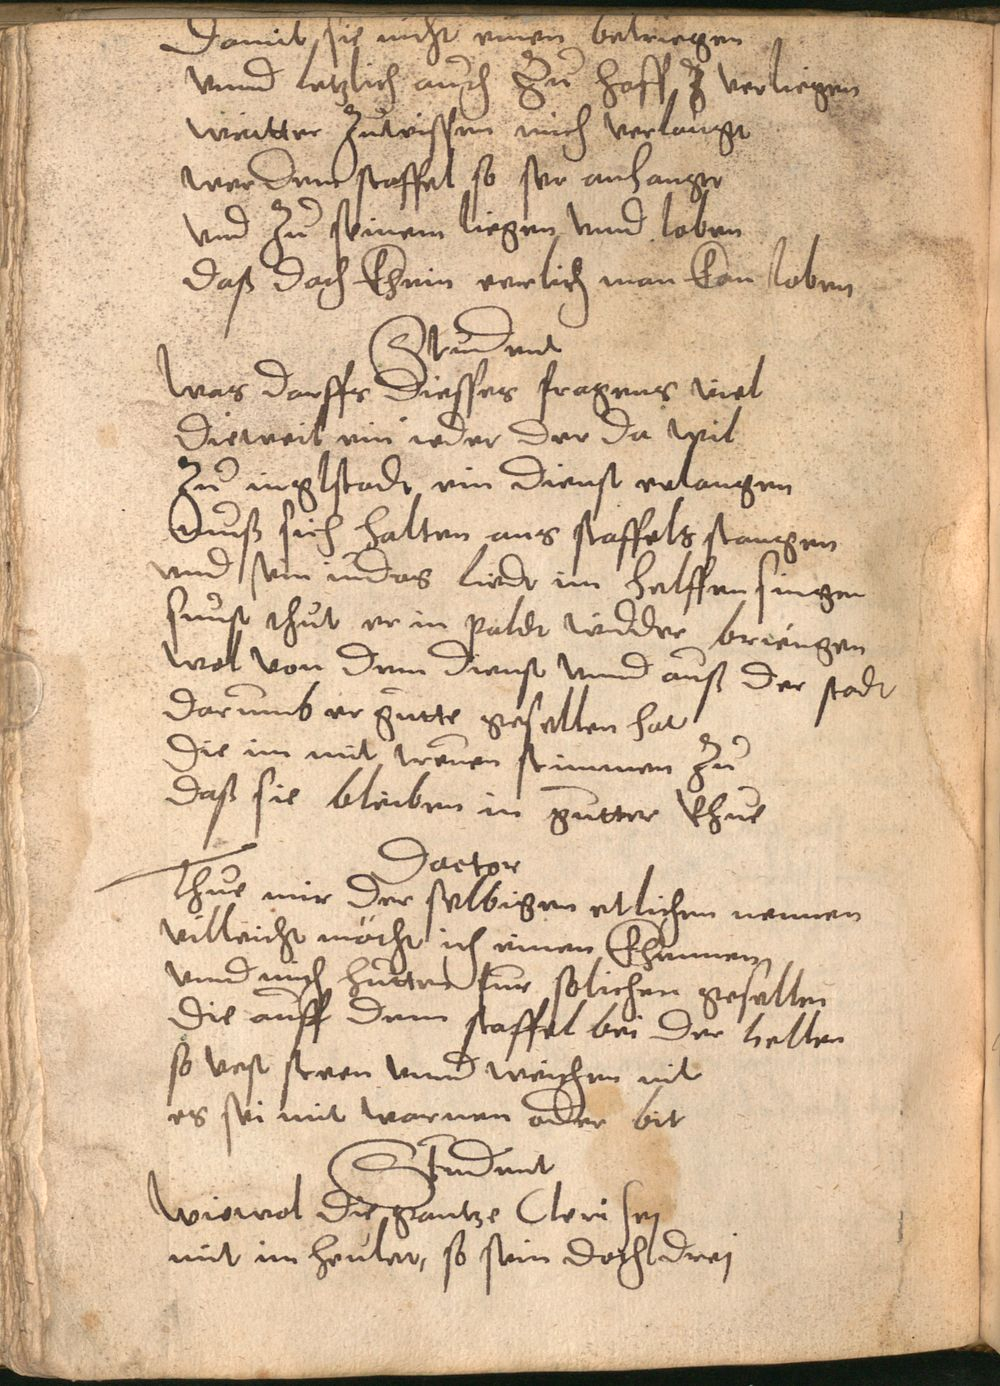 Damit sie nicht einen betriegen
vnnd letzlich auch zu hoff verliegen
weitter zuwissen mich verlangt
wer dem staffel so ser anhanget
vnd zu seinem liegen vnnd loben
daß doch khein eerlich man kan loben
Student
Was darffs diesses fragens viel
dieweil ein ieder der da wil
zu inglstadt ein dienst erlangen
muß sich halten ans staffels stangen
vnd sein iudas liedt im helffen singen
sunst thut er in paldt widder bringen
wol von dem dienst vnnd auß der stadt
darumb er gutte gesellen hat
die im mit trewen stimmen zu
daß sie bleiben in gutter rhue
Doctor
Thue mir der selbigen etlichen nennen
villeicht möcht ich einen khennen
vnnd mich hutten fur solichen gesellen
die auff dem staffel bei der hellen
so vest steen vnnd weichen nit
es sei mit warnen oder bit
Student
Wiewol die gantze Clerisey
mit im heulet, so sein doch drei